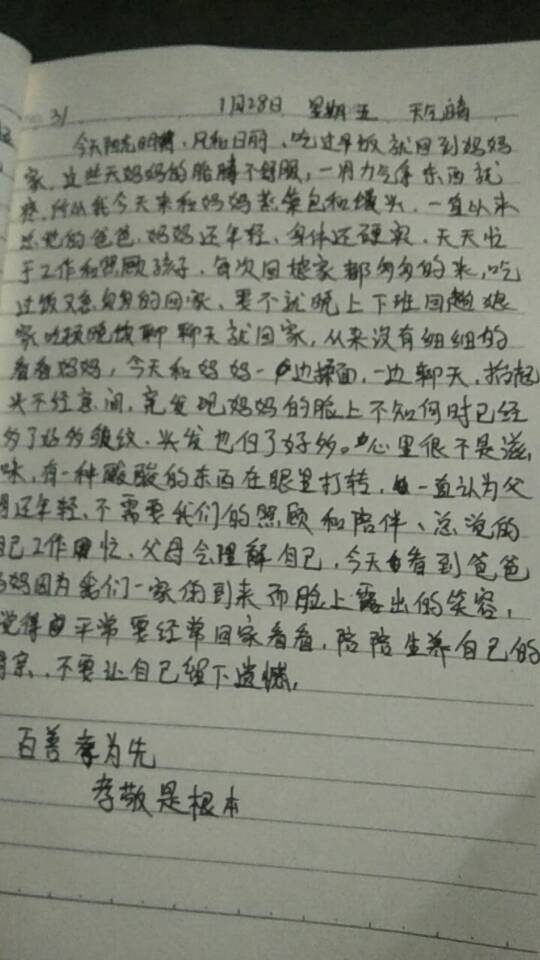 31 1月28日 星期五 天气晴
今天阳光明媚,风和日丽,吃过早饭就回到妈妈
家,这些天妈妈的胳膊不舒服,一用力气拿东西就
疼,所以我今天来和妈妈蒸菜包和馒头,一直以来
总觉的爸爸,妈妈还年轻,身体还硬朗,天天忙
于工作和照顾孩子,每次回娘家都匆匆的来,吃
过饭又急匆匆的回家,要不就晚上下班回趟娘
家吃顿晚饭聊聊天就回家,从来没有细细的
看看妈妈,今天和妈妈一边揉面,一边聊天,抬起
头不经意间,竟发现妈妈的脸上不知何时已经
多了好多皱纹,头发也白了好多。心里很不是滋
味,有一种酸酸的东西在眼里打转,一直认为父
母还年轻、不需要我们的照顾和陪伴、总说的
自己工作忙,父母会理解自己,今天看到爸爸
妈妈因为我们一家的到来而脸上露出的笑容,
觉得平常要经常回家看看,陪陪生养自己的
,不要让自己留下遗憾,
百善孝为先
孝敬是根本